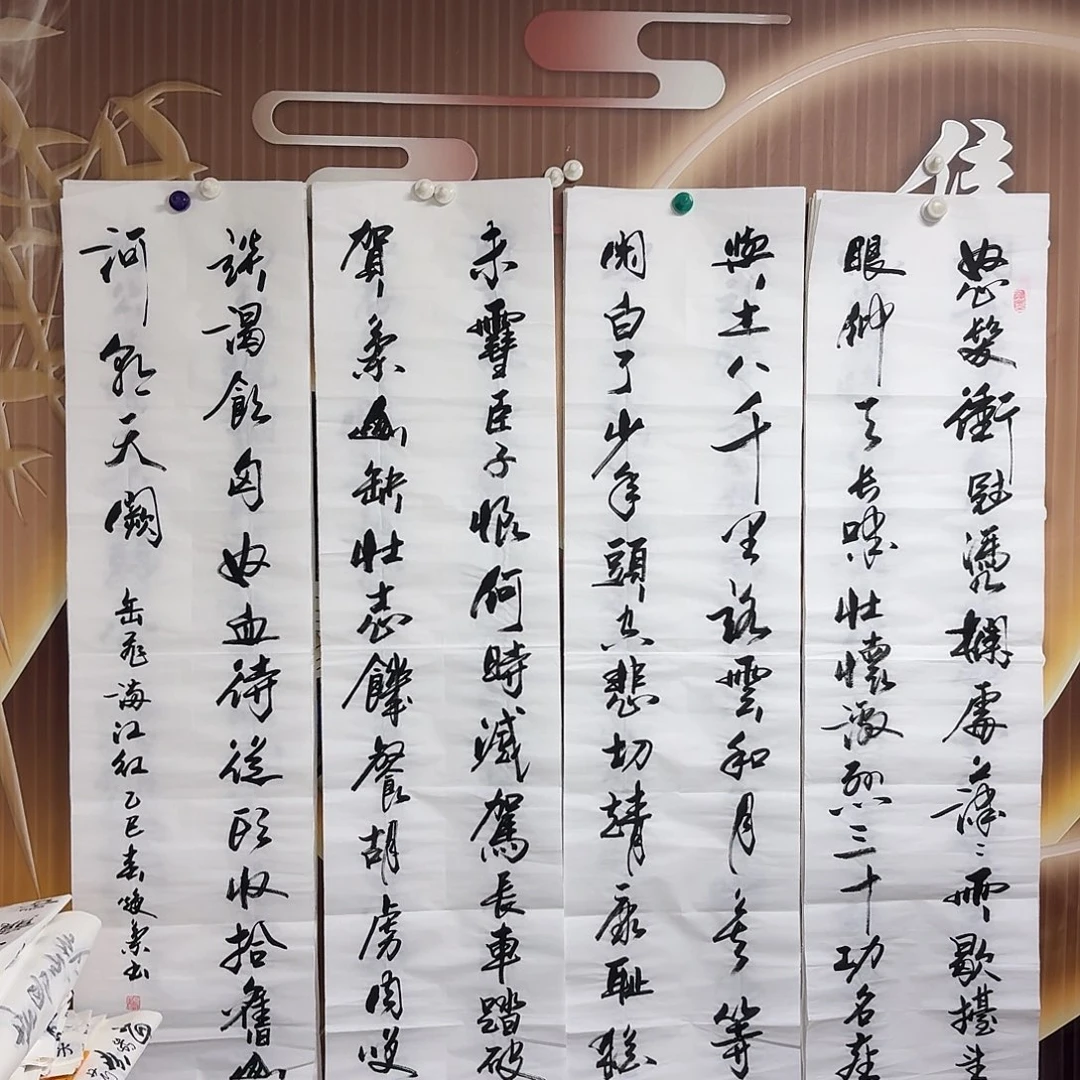 佳
怒髮衝冠憑欄處瀟瀟雨歇擡望
眼仰天長嘯壯懷激烈三十功名塵
與土八千里路雲和月莫等
閑白了少年頭空悲切靖康恥猶
未雪臣子恨何時滅駕長車踏破
賀蘭山缺壯志饑餐胡虜肉笑
談渴飲匈奴血待從頭收拾舊山
河朝天闕
岳飛滿江紅乙巳春書